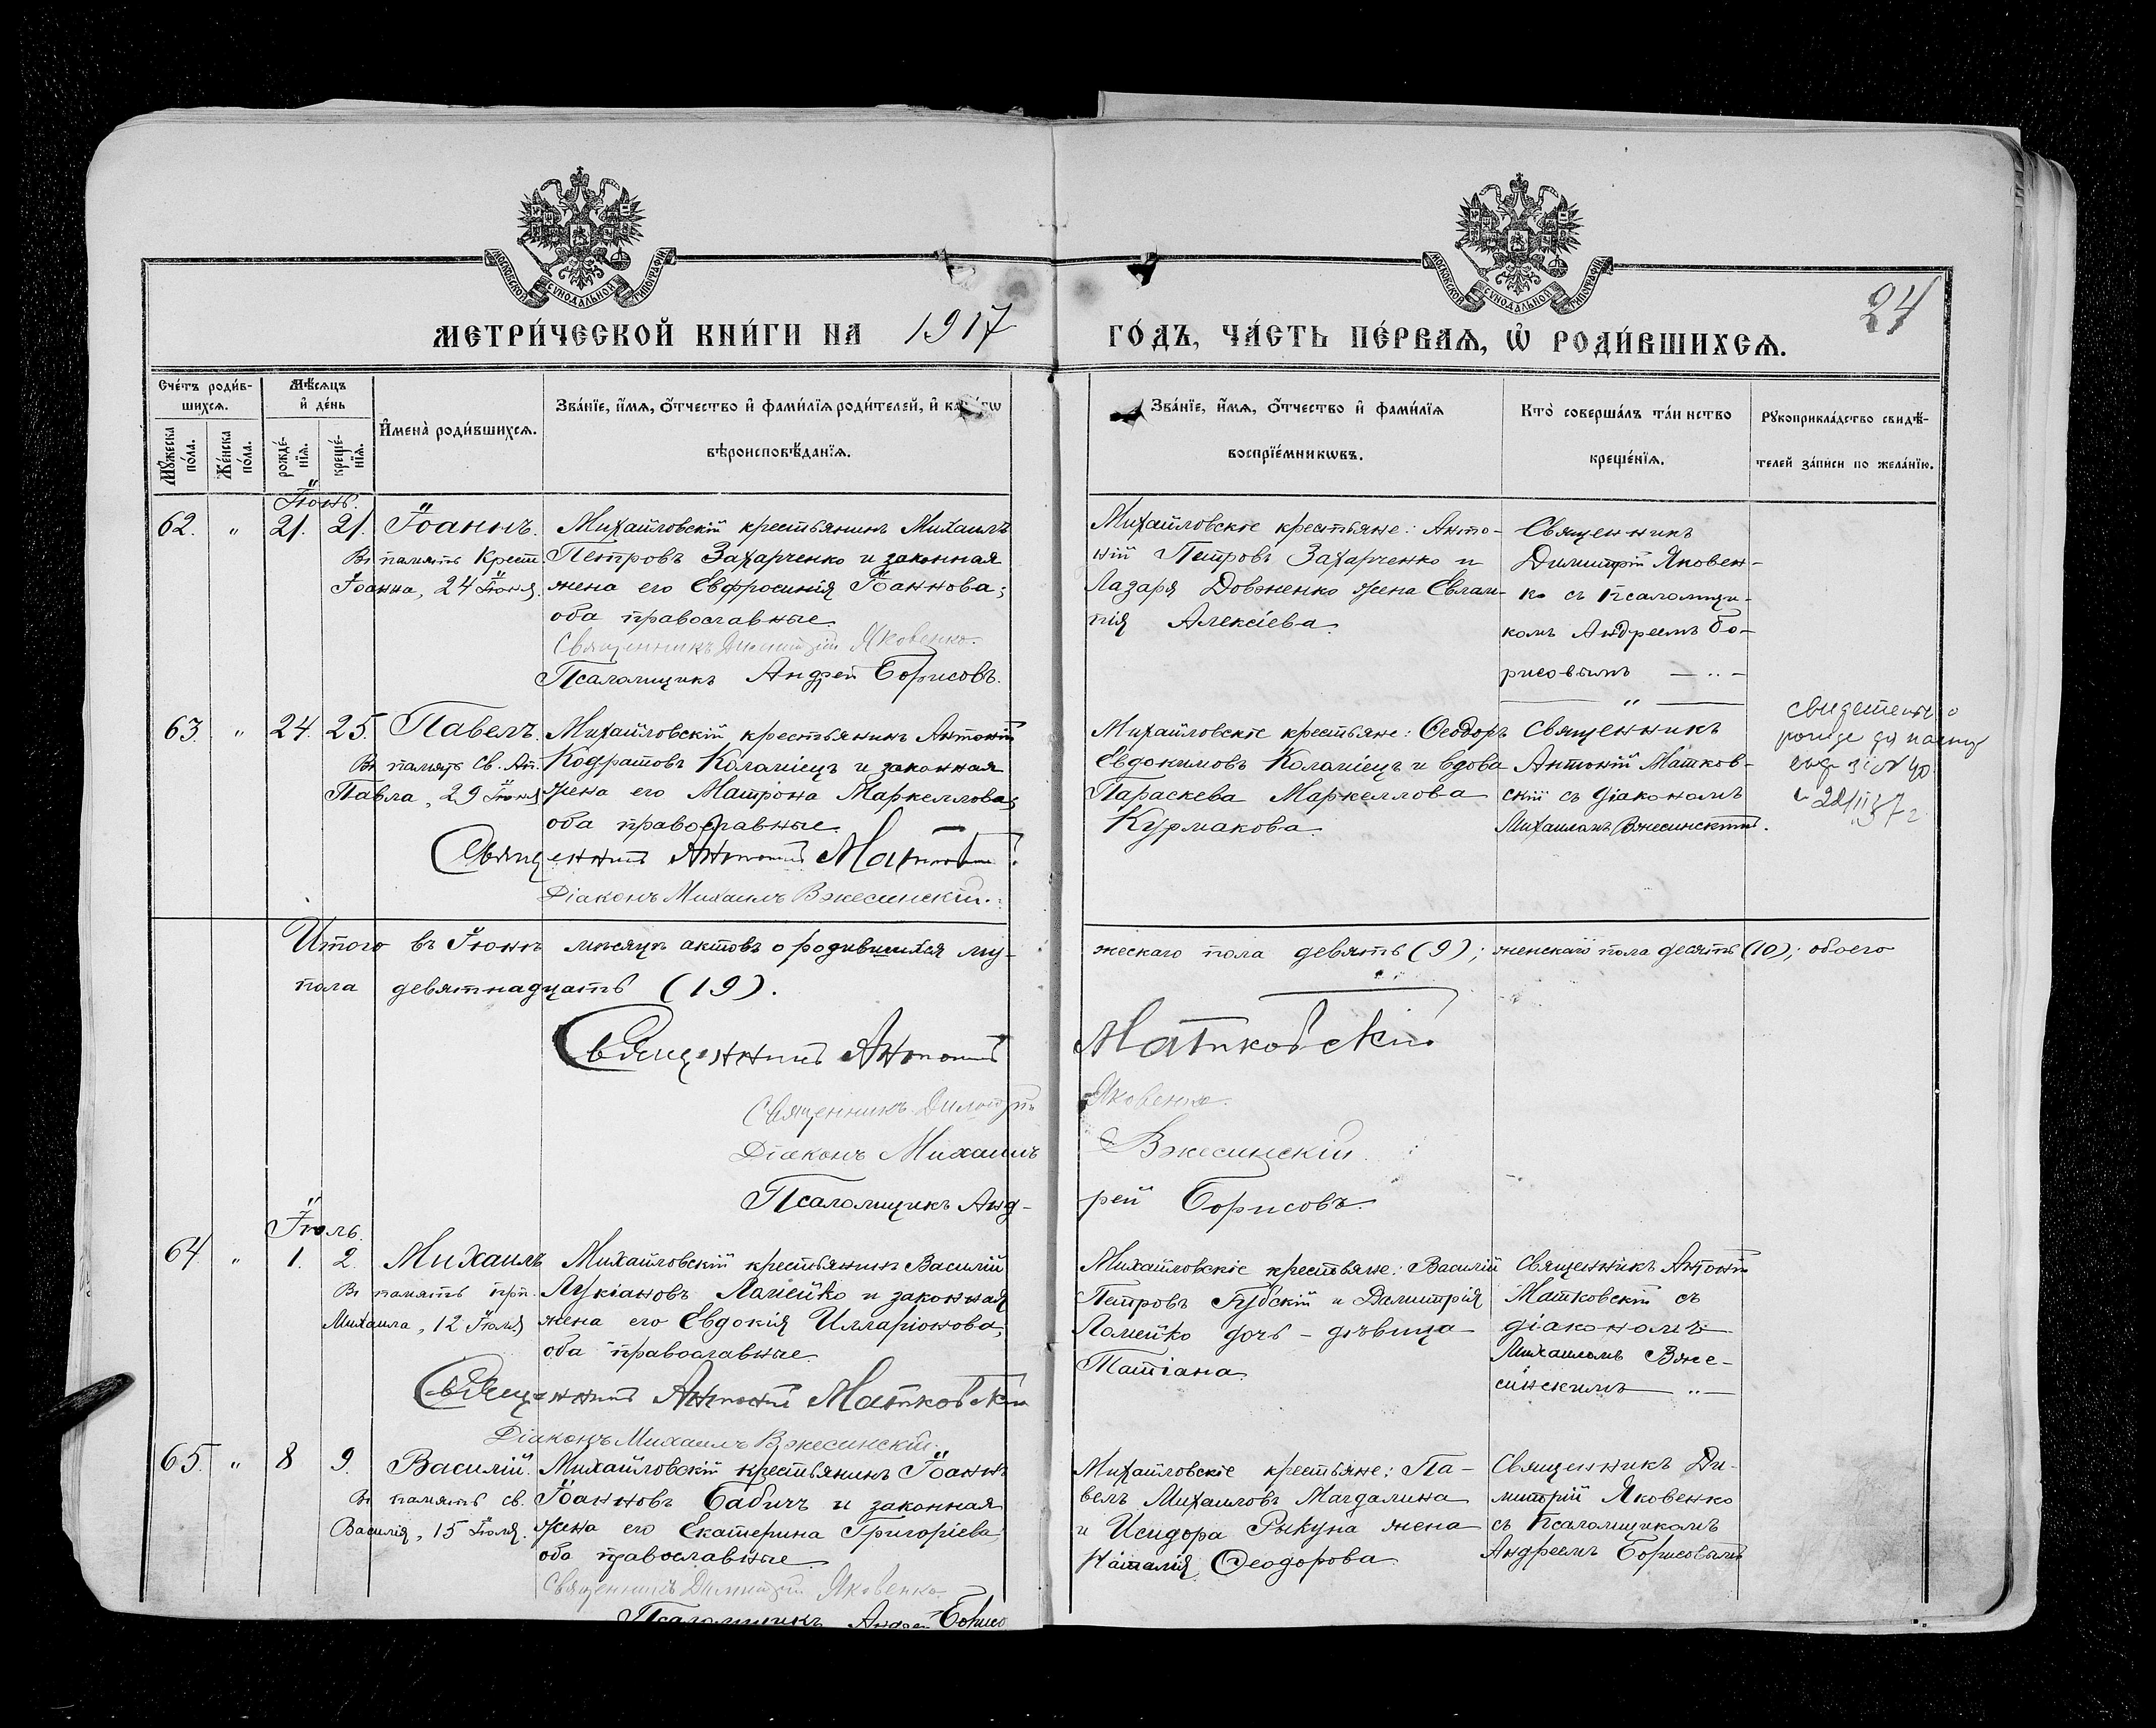 МОСКОВСКОЙ СѴНОДАЛЬНОЙ ТИПОГРАФІИ
МОСКОВСКОЙ СѴНОДАЛЬНОЙ ТИПОГРАФІИ
24
МЕТРИ́ЧЕСКОЙ КНИ́ГИ НА 1917 ГО́ДЪ, ЧА́СТЬ ПЕ́РВАѦ, Ѽ РОДИ́ВШИХСѦ.
Сче́тъ роди́в-
шихсѧ.
Мꙋ́жеска по́ла.
Же́нска по́ла.
Мѣ́сѧцъ
и҆ де́нь
рожде́-
нїѧ.
креще́-
нїѧ.
И҆мена̀ роди́вшихсѧ.
Зва́нїе, и҆́мѧ, ѻ҆́тчество и҆ фами́лїѧ роди́телей, и҆
вѣроисповѣ́данїѧ.
Зва́нїе, и҆́мѧ, ѻ҆́тчество и҆ фами́лїѧ
воспрїе́мникѡвъ.
Кто̀ соверша́лъ та́инство
креще́нїѧ.
Рꙋкоприкла́дство свидѣ́-
телей за́писи по жела́нїю.
Іюнь.
62. " 21. 21. Іоаннъ.
Въ память Крест.
Іоанна, 24 Іюня.
Михайловскій крестьянинъ Михаилъ
Петровъ Захарченко и законная
жена его Евфросинія Іоаннова;
оба православные.
Священникъ Димитрій Яковенко.
Псаломщикъ Андрей Борисовъ.
Михайловскіе крестьяне: Анто-
ній Петровъ Захарченко и
Лазаря Довженко жена Евлам-
пія Алексіева.
Священникъ
Димитрій Яковен-
ко съ псаломщи-
комъ Андреемъ Бо-
рисовымъ
63. " 24. 25. Павелъ.
Въ память св. Ап.
Павла, 29 Іюня
Михайловскій крестьянинъ Антоній
Кодратовъ Коломіецъ и законная
жена его Матрона Маркеллова;
оба православные.
Священникъ Антоній
Діаконъ Михаилъ Вжесинскій.
Михайловскіе крестьяне: Ѳеодоръ
Евдокимовъ Коломіецъ и вдова
Параскева Маркеллова
Курмакова.
Священникъ
Антоній Матков-
скій съ діакономъ
Михаиломъ Вжесинскимъ.
37 г
Итого въ Іюнѣ мѣсяцѣ актовъ о родившихся му-
жескаго пола девять (9); женскаго пола десять (10); обоего
пола девятнадцать (19).
Священникъ Антоній Матковскій
Священникъ Димитрій Яковенко.
Діаконъ Михаилъ Вжесинскій.
Псаломщикъ Анд-рей Борисовъ.
Іюль.
64. " 1. 2. Михаилъ
Въ память прп.
Михаила, 12 Іюля
Михайловскій крестьянинъ Василій
Лукіановъ Ломейко и законная
жена его Евдокія Илларіонова;
оба православные.
Священникъ Антоній Матковскій
Діаконъ Михаилъ Вжесинскій.
Михайловскіе крестьяне: Василій
Петровъ Губскій и Димитрія
Ломейко дочь - дѣвица
Татіана.
Священникъ Антоній
Матковскій съ
діакономъ
Михаиломъ Вже-
синскимъ
65. " 8 9. Василій.
Въ память св.
Василія, 15 Іюля.
Михайловскій крестьянинъ Іоаннъ
Іоанновъ Бабичъ и законная
жена его Екатерина Григоріева;
оба православные
Священникъ Димитрій Яковенко
Псаломщикъ Андрей Борисо
Михайловскіе крестьяне: Па-
велъ Михаиловъ Магдалина
и Исидора Рыкуна жена
Наталія Ѳеодорова
Священникъ Ди-
митрій Яковенко
съ псаломщикомъ
Андреемъ Борисовымъ